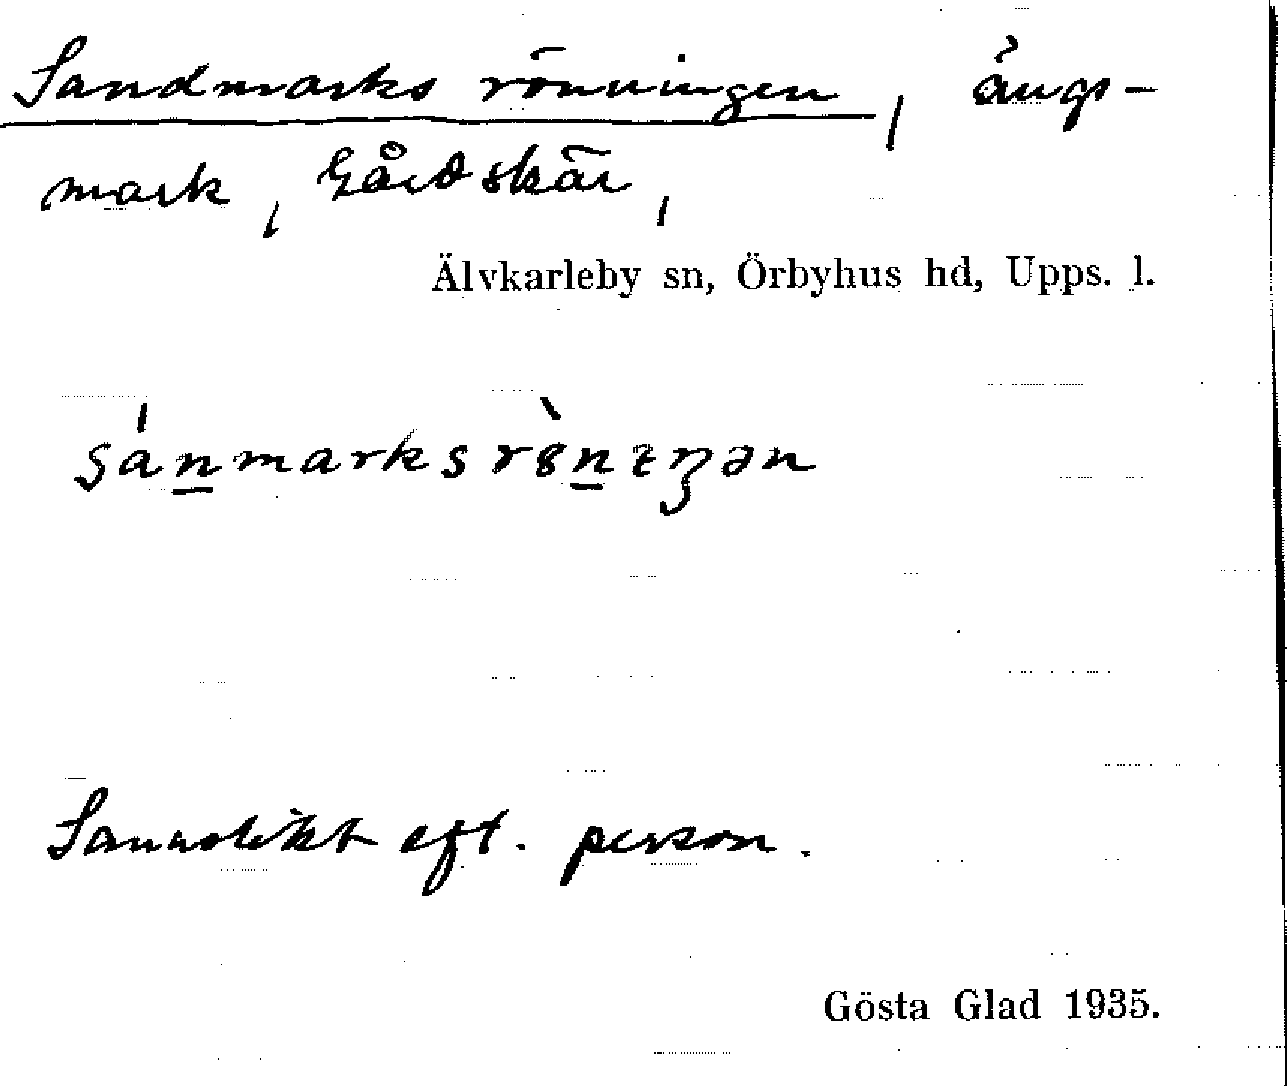 Sandmarks rönningen, ängs-
mark, Gårdskär,
Älvkarleby sn, Örbyhus hd, Upps. l.
sánmarksrò̈nıŋən
Sannolikt eft. person.
Gösta Glad 1935.